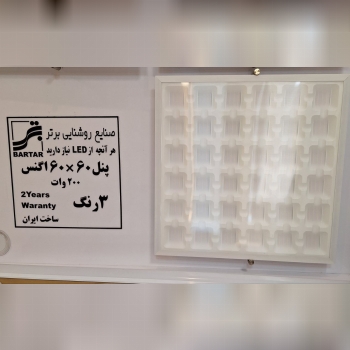 صنایع روشنایی برتر
هر آنچه از LED نیاز دارید
BARTAR
پنل ۶۰×۶۰ اگنس
۲۰۰ وات
2Years
Waranty
۳ رنگ
ساخت ایران